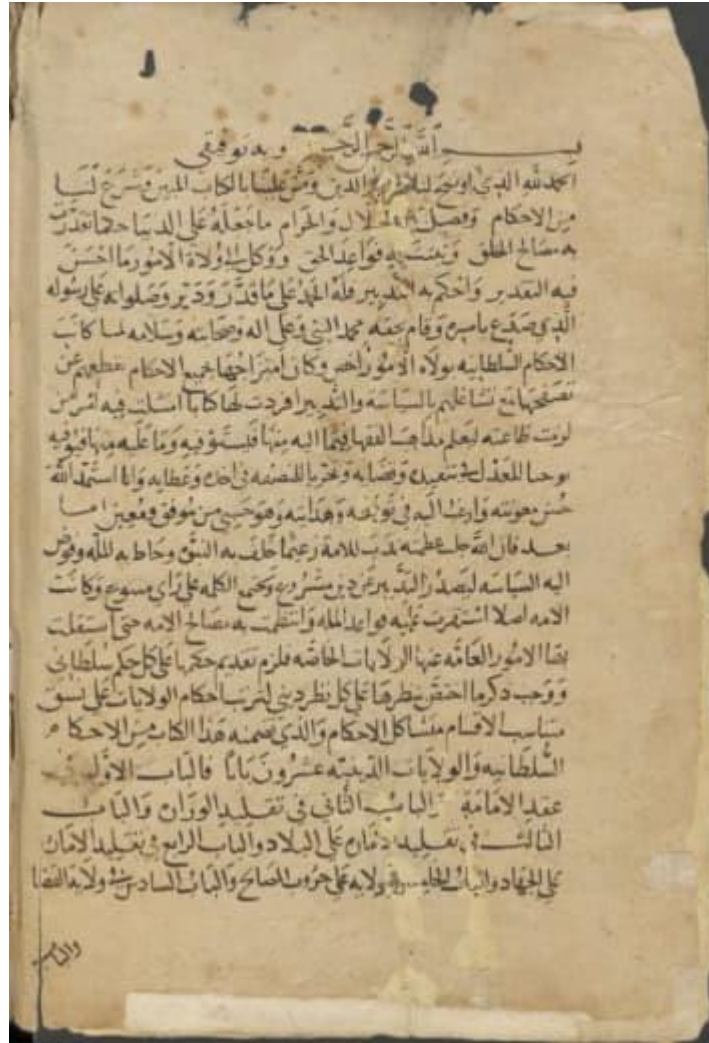 بسم الله الرحمن الرحيم وبه توفيقي
الحمد لله الذي اوضح لنا معالم الدين ومن علينا بالكتاب المبين وشرع لنا
من الاحكام وفصل من الحلال والحرام ما جعله على الدنيا حكما تقررت
به مصالح الخلق وثبتت به قواعد الحق ووكل الى ولاة الامور ما احسن
فيه التقدير واحكم به التدبير فله الحمد على ما قدر ودبر وصلواته على رسوله
الذي صدع بامره وقام بحقه محمد النبي وعلى اله وصحابته وسلامه لما كانت
الاحكام السلطانيه بولاه الامور احق وكان امتزاجها بجميع الاحكام يقطعهم عن
تصفحها مع تشاغلهم بالسياسه والتدبير افردت لها كتابا امتثلت فيه امر من
لزمت طاعته ليعلم مذاهب الفقها فيما اليه منها فيستوفيه وما عليه منها فيوفيه
توخيا للعدل في تنفيذه وقضايه وتحريا للنصفه في اخذه وعطايه وانا استمد الله
حسن معونته وارغب اليه في توفيقه وهدايته وهو حسبي من موفق ومعين اما
بعد فان الله جلت عظمته ندب للامة زعيما خلف به النبوة وحاط به المله وفوض
اليه السياسه ليصدر التدبير عن دين مشروع وتجتمع الكلمه على راي متبوع وكانت
الامه اصلا استقرت عليه قواعد المله وانتظمت به مصالح الامه حتى استقلت
بها الامور العامه عنها الولايات الخاصه فلزم تقديم حكمها على كل حكم سلطاني
ووجب ذكر ما اختص بنظرها على كل نظر ديني لترتيب احكام الولايات على نسق
متناسب الاقسام متشاكل الاحكام والذي تضمنه هذا الكتاب من الاحكام
السلطانيه والولايات الدينيه عشرون بابا فالباب الاول في
عقد الامامة الباب الثاني في تقليد الوزارة والباب
الثالث في تقليد الامارة على البلاد والباب الرابع في تقليد الامارة
على الجهاد والباب الخامس في الولايه على حروب المصالح والباب السادس في ولاية القضا